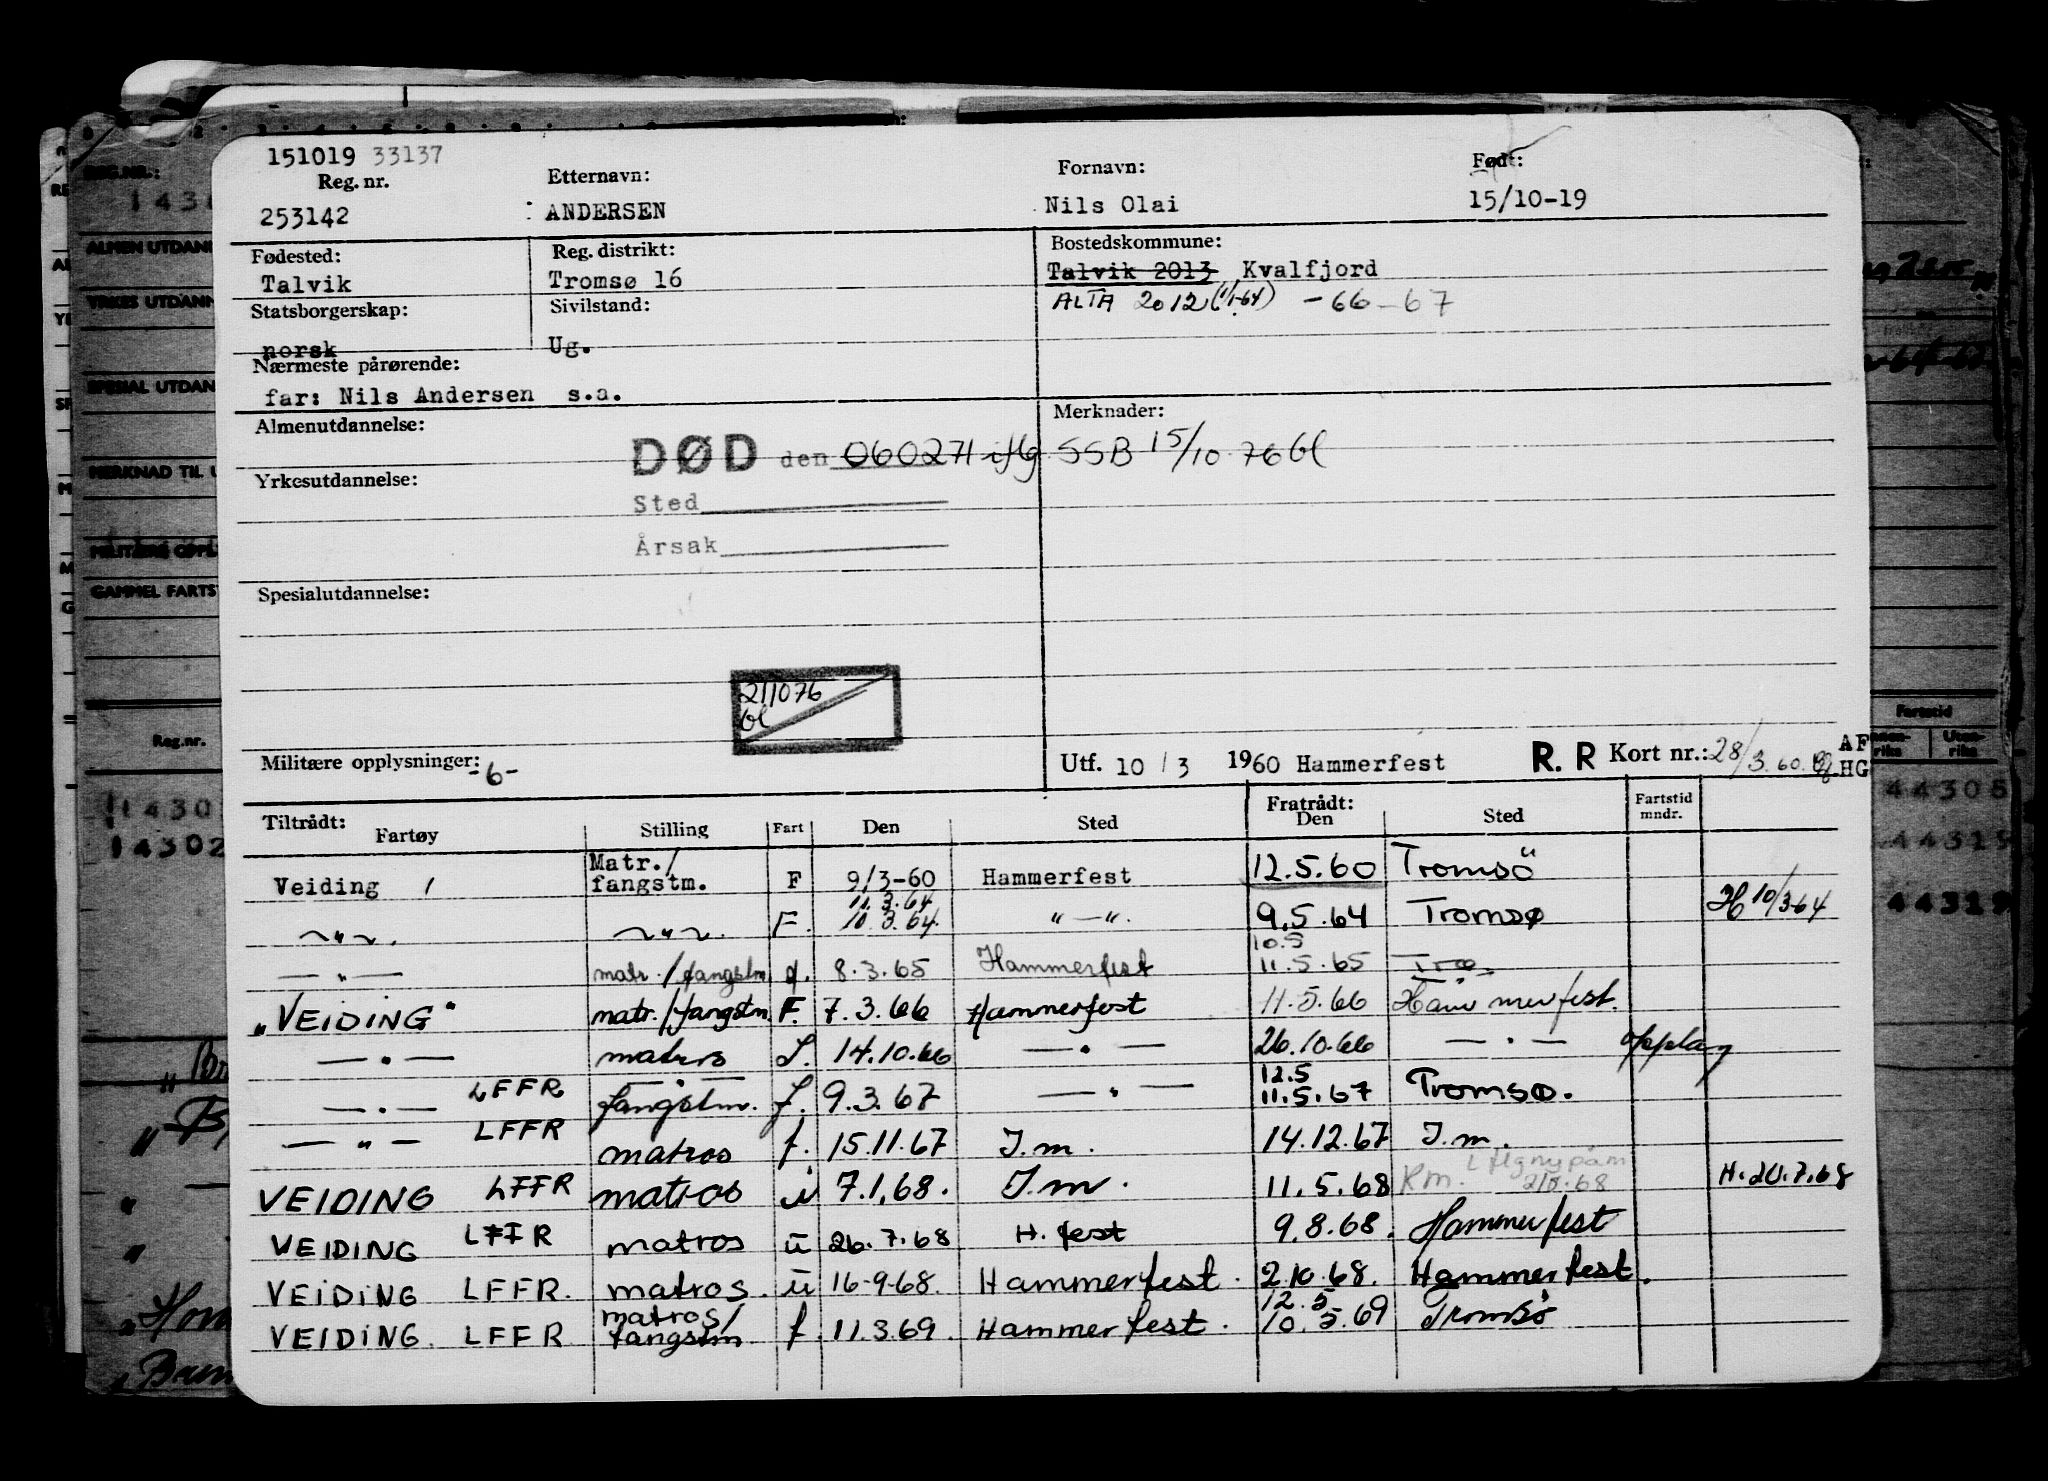 151019 33137
Reg. nr. Etternavn: Fornavn: Født:
253142 ANDERSEN Nils Olai 15/10-19
Fødested: Reg. distrikt: Bostedskommune:
Talvik Tromsø 16 Talvik 2013 Kvalfjord
Statsborgerskap: Sivilstand: ALTA 2012 (1/1-64) - 66 - 67
norsk Ug.
Nærmeste pårørende:
far: Nils Andersen s.a.
Almenutdannelse: Merknader:
DØD den 060271 iflg SSB 15/10 76 bl
Yrkesutdannelse:
Sted
Årsak
Spesialutdannelse:
211076
bl
Militære opplysninger: -6- Utf. 10 / 3 1960 Hammerfest R. R Kort nr.: 28/3.60. AF
HG
Tiltrådt: Fartøy Stilling Fart Den Sted Fratrådt: Den Sted Fartstid mndr.
Veiding 1 Matr./ fangstm. F 9/3-60 Hammerfest 12.5.60 Tromsö
11.3.64
~"~. ~"~. F. 10.3.64. "—". 9.5.64 Tromsø H 10/3 64
10.5
— " — matr./fangstm f. 8.3.65 Hammerfest 11.5.65 Trø.
"VEIDING" matr./fangstm. F. 7.3.66 Hammerfest 11.5.66 Hammerfest.
— " — matros S. 14.10.66 — " — 26.10.66 — " — Opplag
12.5
— " — LFFR — " — fangstm. f. 9.3.67 — " — 11.5.67 Tromsø.
— " — LFFR matros f. 15.11.67 J.m. 14.12.67 J.m.
VEIDING LFFR matros ū 7.1.68. J.m. 11.5.68 Rm. H. 20.7.68
VEIDING LFFR matros ū 26.7.68 H. fest 9.8.68. Hammerfest
VEIDING LFFR. matros. ū 16-9-68. Hammerfest. 2.10.68. Hammerfest.
12.5
VEIDING. LFFR matros/ fangstm f. 11.3.69. Hammerfest. 10.5.69 Tromsø
REG.NR.:
ALMEN UTDANN
YRKES UTDANN
SPESIAL UTDAN
MERKNAD TIL U
MILITÆRE OPPL
GAMMEL FARTS
Reg.nr.
Fartstid
44305
44319
44319